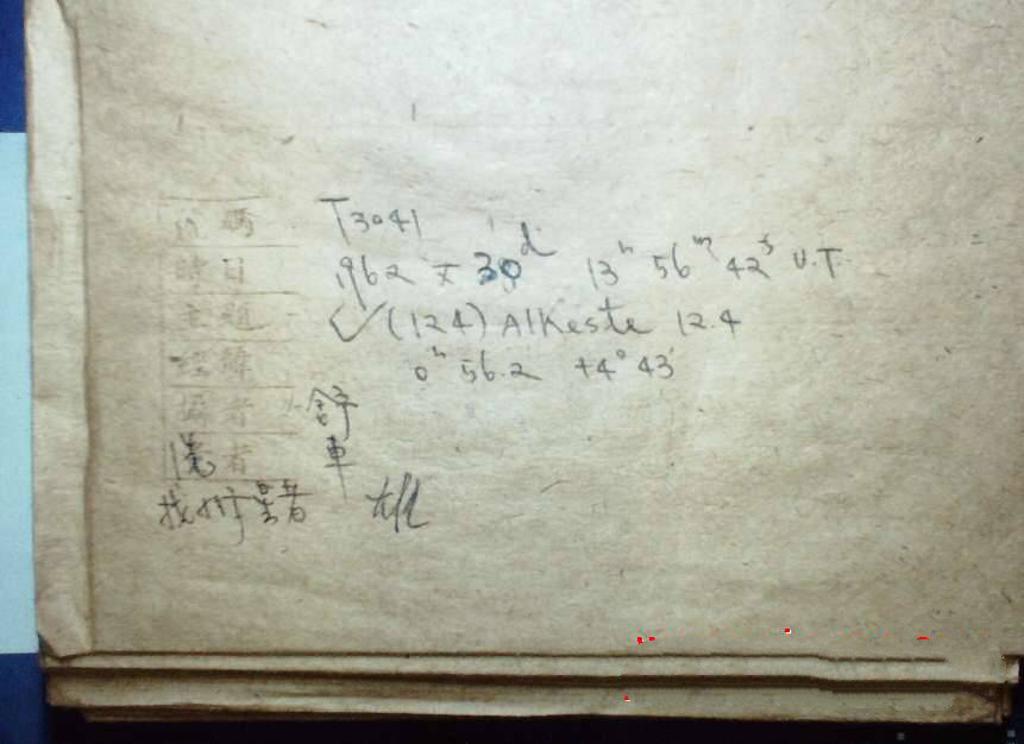 號碼 T3041
時日 1962 X 30ᵈ 13ʰ 56ᵐ 42ˢ U.T.
主題 ✓(124) Alkeste 12.4
0ʰ 56.2 +4° 43'
攝者 舒
者 車
找 星者 雄